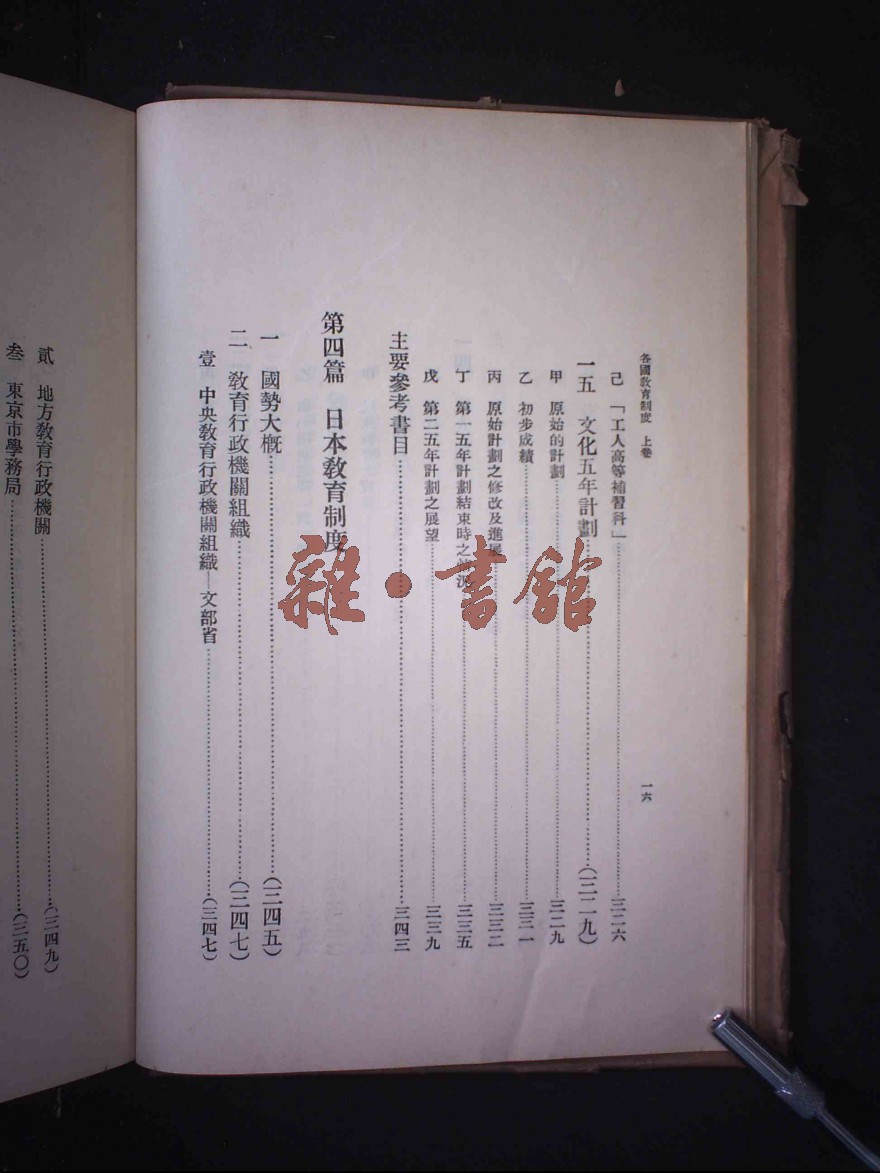 各國教育制度 上卷
一六
己 「工人高等補習科」……三二六
一五 文化五年計劃……(三二九)
甲 原始的計劃……三二九
乙 初步成績……三三一
丙 原始計劃之修改及進展……三三二
丁 第一五年計劃結束時之狀況……三三五
戊 第二五年計劃之展望……三三九
主要參考書目……三四三
第四篇 日本教育制度
一 國勢大概……(三四五)
二 教育行政機關組織……(三四七)
壹 中央教育行政機關組織—文部省……(三四七)
貳 地方教育行政機關……(三四九)
叁 東京市學務局……(三五〇)
雜·書館